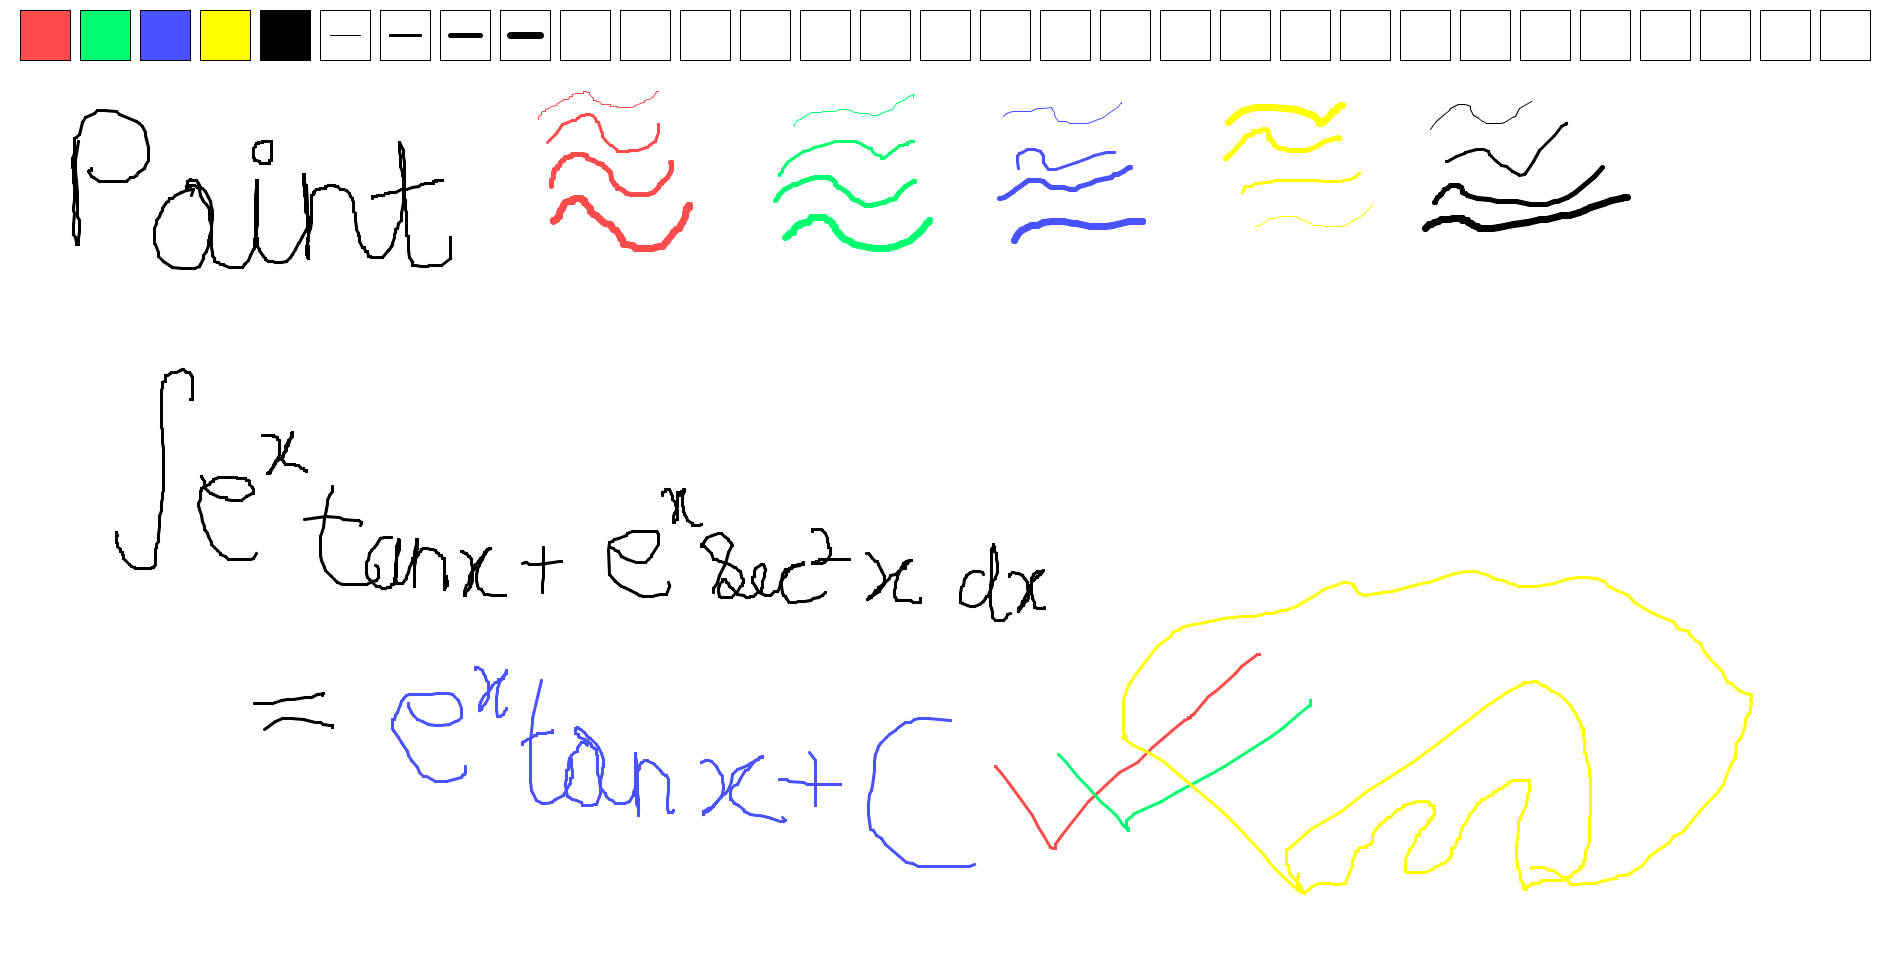 Paint
∫e^x tanx + e^x sec^2 x dx
= e^x tanx + C